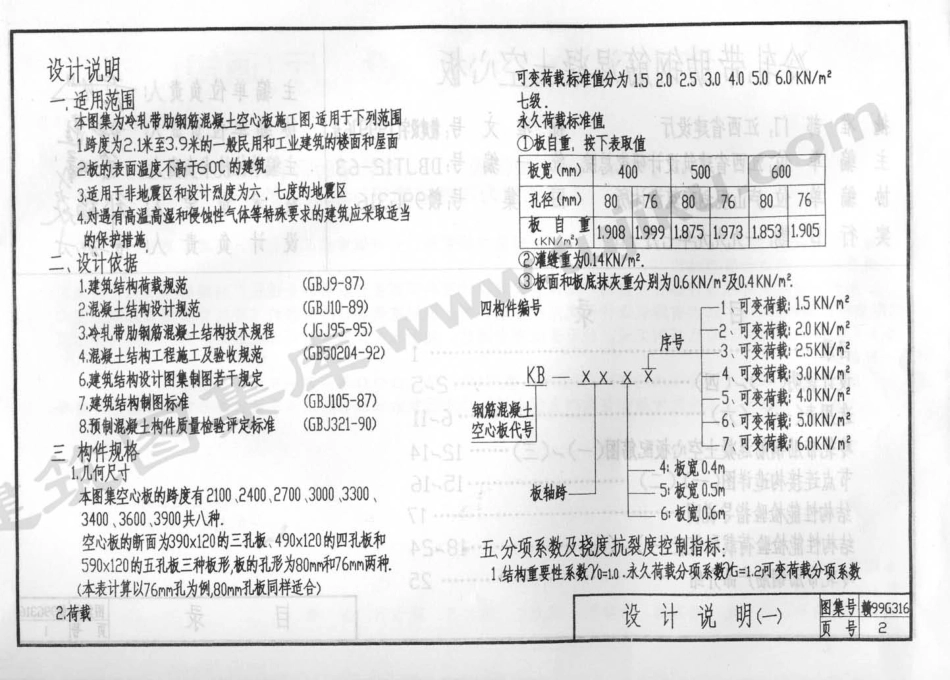 设计说明
一、适用范围
本图集为冷轧带肋钢筋混凝土空心板施工图,适用于下列范围
1.跨度为2.1米至3.9米的一般民用和工业建筑的楼面和屋面
2.板的表面温度不高于60℃的建筑
3.适用于非地震区和设计烈度为六、七度的地震区
4.对遇有高温,高湿和侵蚀性气体等特殊要求的建筑应采取适当
的保护措施.
二、设计依据
1.建筑结构荷载规范 (GBJ9-87)
2.混凝土结构设计规范 (GBJ10-89)
3.冷轧带肋钢筋混凝土结构技术规程 (JGJ95-95)
4.混凝土结构工程施工及验收规范 (GB50204-92)
6.建筑结构设计图集制图若干规定
7.建筑结构制图标准 (GBJ105-87)
8.预制混凝土构件质量检验评定标准 (GBJ321-90)
三 构件规格
1.几何尺寸
本图集空心板的跨度有2100、2400、2700、3000、3300、
3400、3600、3900共八种.
空心板的断面为390x120的三孔板、490x120的四孔板和
590x120的五孔板三种板形,板的孔形为80mm和76mm两种.
(本表计算以76mm孔为例,80mm孔板同样适合)
2.荷载
可变荷载标准值分为 1.5 2.0 2.5 3.0 4.0 5.0 6.0KN/m²
七级.
永久荷载标准值
①板自重, 按下表取值
板宽(mm) 400 500 600
孔径(mm) 80 76 80 76 80 76
板自重(KN/m²) 1.908 1.999 1.875 1.973 1.853 1.905
②灌缝重为0.14KN/m².
③板面和板底抹灰重分别为0.6KN/m²及0.4KN/m².
四构件编号
1、可变荷载:1.5KN/m²
2、可变荷载:2.0KN/m²
序号
3、可变荷载:2.5KN/m²
KB — XX.XX
4、可变荷载:3.0KN/m²
5、可变荷载:4.0KN/m²
钢筋混凝土
空心板代号
6、可变荷载:5.0KN/m²
7、可变荷载:6.0KN/m²
4:板宽0.4m
板轴跨
5:板宽0.5m
6:板宽0.6m
五.分项系数及挠度抗裂度控制指标:
1.结构重要性系数γ0=1.0.永久荷载分项系数γG=1.2可变荷载分项系数
设计说明(一)
图集号 赣99G316
页号 2